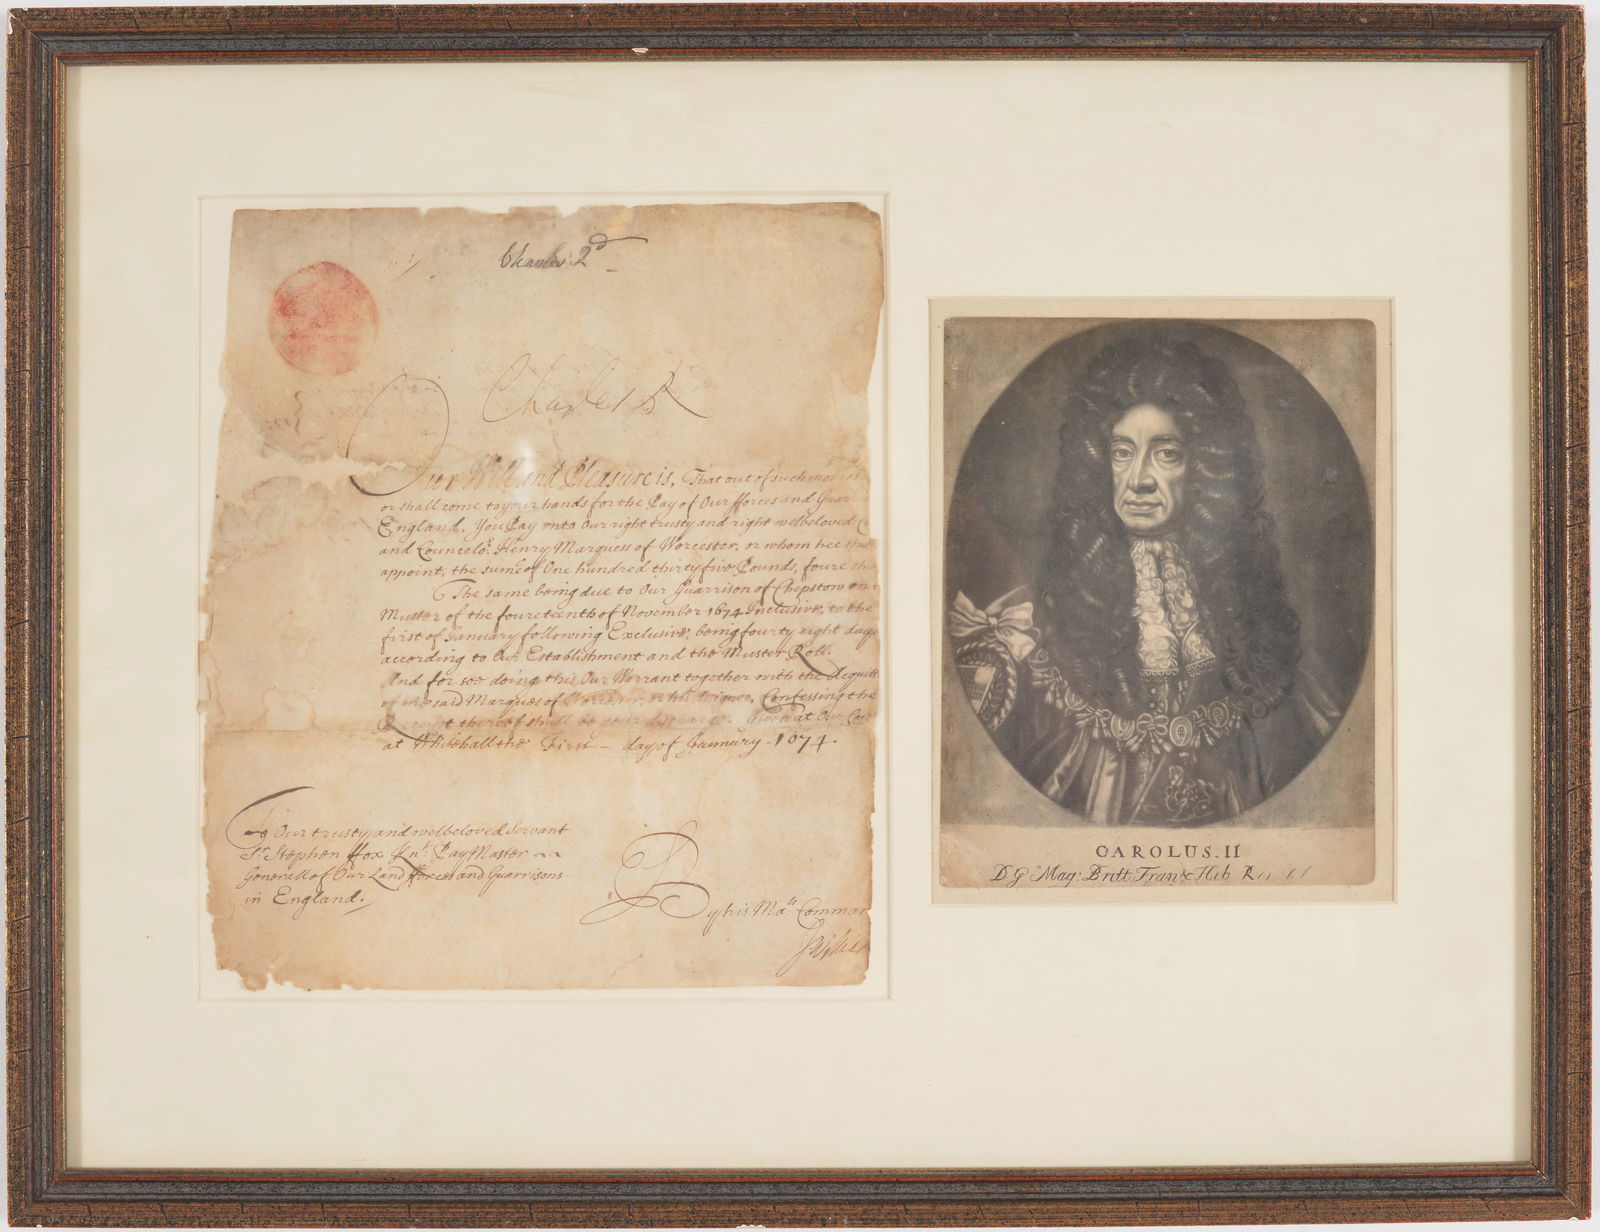 Charles 2d
Charles R
Our Will and Pleasure is, That out of such monies
or shall come to your hands for the Pay of Our fforces and Guar
England, You Pay vnto Our right trusty and right welbeloved
and Councelor. Henry Marquess of Worcester, or whom hee shall
appoint, the sume of One hundred thirty five Pounds, foure
The same being due to Our Guarrison of Chepstow on
Muster of the foureteenth of November 1674 Inclusive, to the
first of January following Exclusive, being fourty eight days
according to Our Establishment and the Muster Roll.
And for soe doing this Our Warrant together with the Acquitt
of the said Marques of Worcester, or his Asignee, Confessing the
Receipt thereof shall be your discharge. Given at Our Co
at Whitehall the First day of January 1674.
To Our trusty and welbeloved Servant
Sr. Stephen ffox Knt. Pay Master
Generall of Our Land fforces and Guarrisons
in England.
By his Mats. Comman
CAROLUS.II
D G Mag: Britt Fran & Hib R